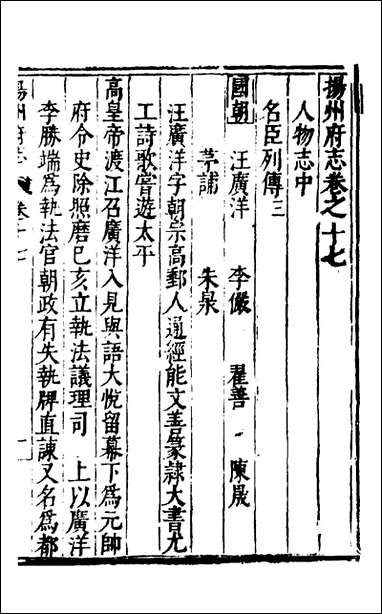 揚州府志卷之十七
人物志中
名臣列傳三
國朝 汪廣洋 李儼 翟善 陳晟
茅誧 朱杲
汪廣洋字朝宗高郵人通經能文善篆隸大書尤
工詩歌嘗遊太平
高皇帝渡江召廣洋入見與語大悅留幕下爲元帥
府令史除照磨己亥立執法議理司 上以廣洋
李勝端爲執法官朝政有失執牌直諫又名爲都
揚州府志 卷十七 一